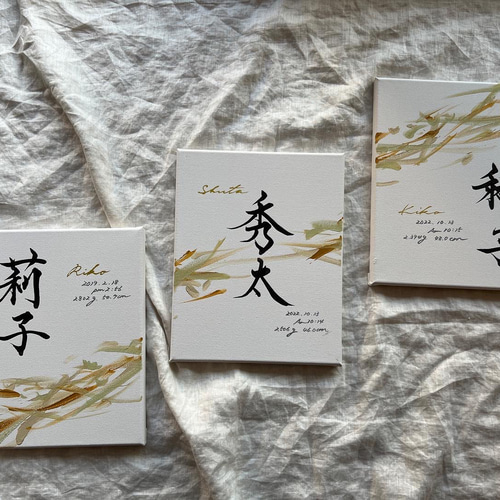 莉子
Riho
2019.2.18
pm 2:56
2802g 50.7cm
Shuta
秀太
2022.10.13
Am 10:14
2506g 46.0cm
Kiho
2022.10.13
Am 10:15
子